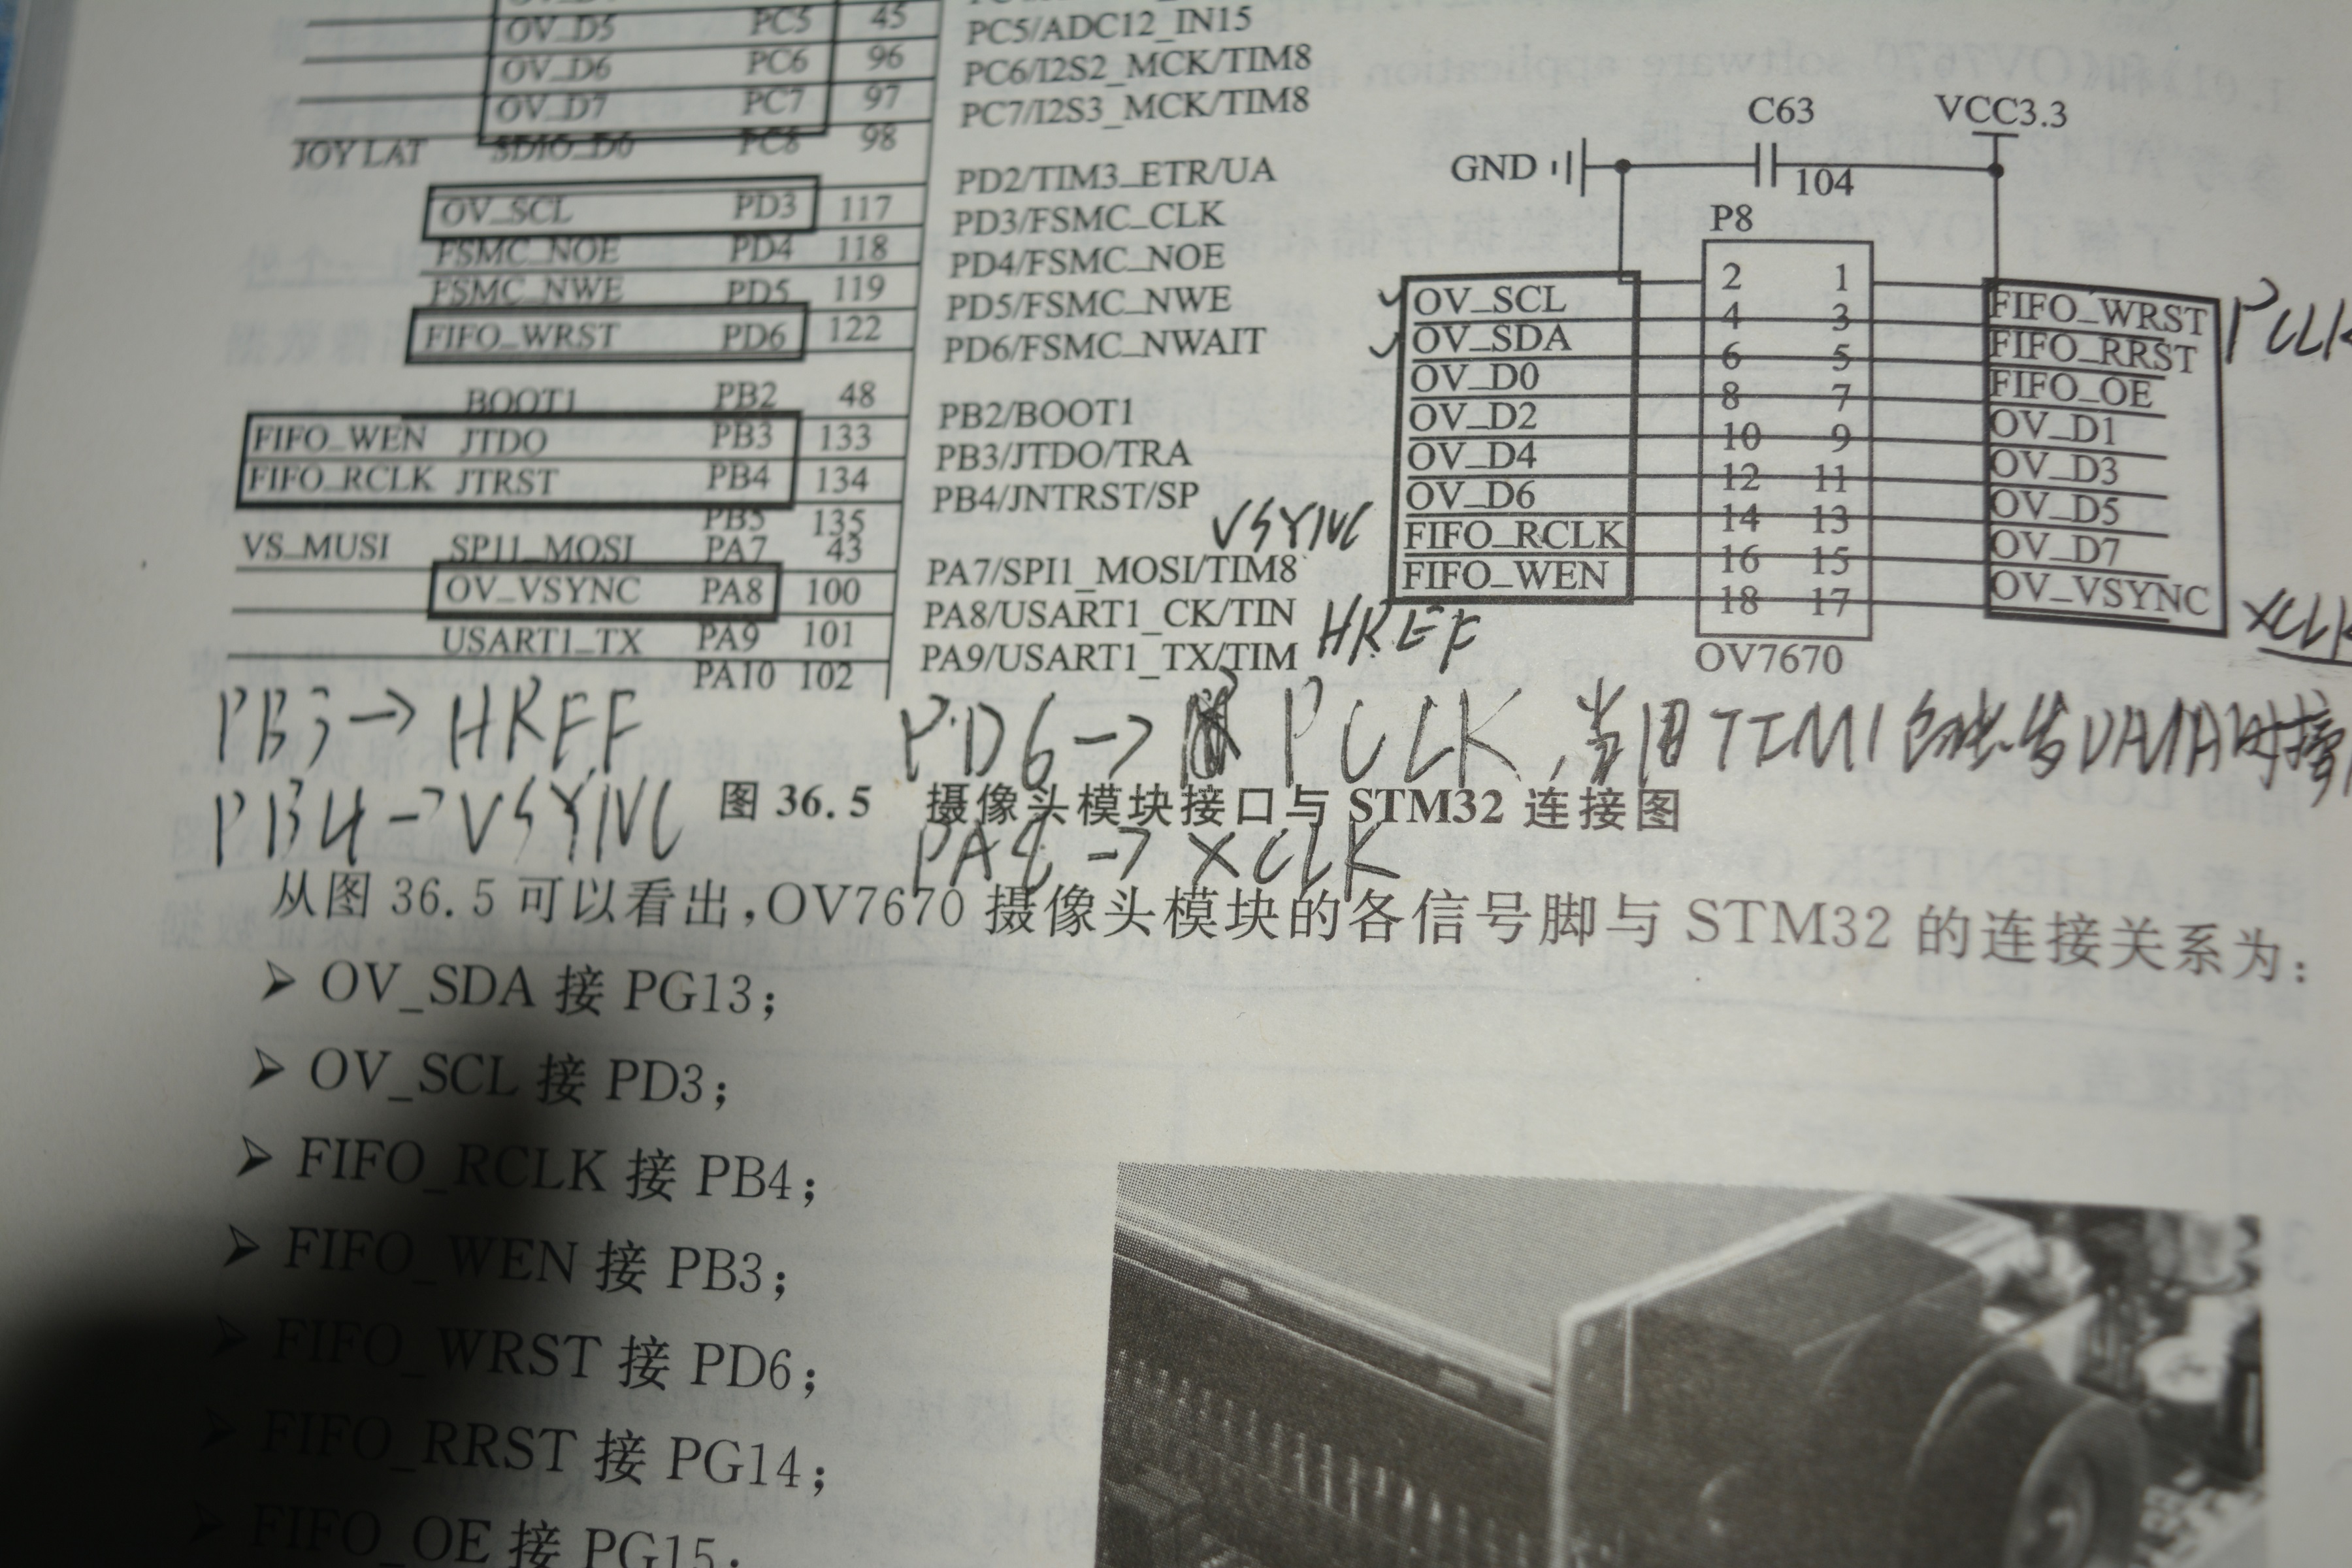 OV_D5 PC5 45 PC5/ADC12_IN15
OV_D6 PC6 96 PC6/I2S2_MCK/TIM8
OV_D7 PC7 97 PC7/I2S3_MCK/TIM8
JOY LAT SDIO_D0 PC8 98
PD2/TIM3_ETR/UA
OV_SCL PD3 117 PD3/FSMC_CLK
FSMC_NOE PD4 118 PD4/FSMC_NOE
FSMC_NWE PD5 119 PD5/FSMC_NWE
FIFO_WRST PD6 122 PD6/FSMC_NWAIT
BOOT1 PB2 48 PB2/BOOT1
FIFO_WEN JTDO PB3 133 PB3/JTDO/TRA
FIFO_RCLK JTRST PB4 134 PB4/JNTRST/SP
PB5 135
VS_MUSI SPI1_MOSI PA7 43 PA7/SPI1_MOSI/TIM8
OV_VSYNC PA8 100 PA8/USART1_CK/TIN
USART1_TX PA9 101 PA9/USART1_TX/TIM
PA10 102
C63 VCC3.3
GND 104
P8
2 1
OV_SCL 4 3 FIFO_WRST PCLK
OV_SDA 6 5 FIFO_RRST
OV_D0 8 7 FIFO_OE
OV_D2 10 9 OV_D1
OV_D4 12 11 OV_D3
OV_D6 14 13 OV_D5
VSYNC FIFO_RCLK 16 15 OV_D7
FIFO_WEN 18 17 OV_VSYNC XCLK
HREF
OV7670
PB3→HREF PD6→PCLK,当用TIM1
PB4→VSYNC
图 36.5 摄像头模块接口与 STM32 连接图
PA8→XCLK
从图 36.5 可以看出,OV7670 摄像头模块的各信号脚与 STM32 的连接关系为:
➢ OV_SDA 接 PG13;
➢ OV_SCL 接 PD3;
➢ FIFO_RCLK 接 PB4;
➢ FIFO_WEN 接 PB3;
➢ FIFO_WRST 接 PD6;
➢ FIFO_RRST 接 PG14;
➢ FIFO_OE 接 PG15;